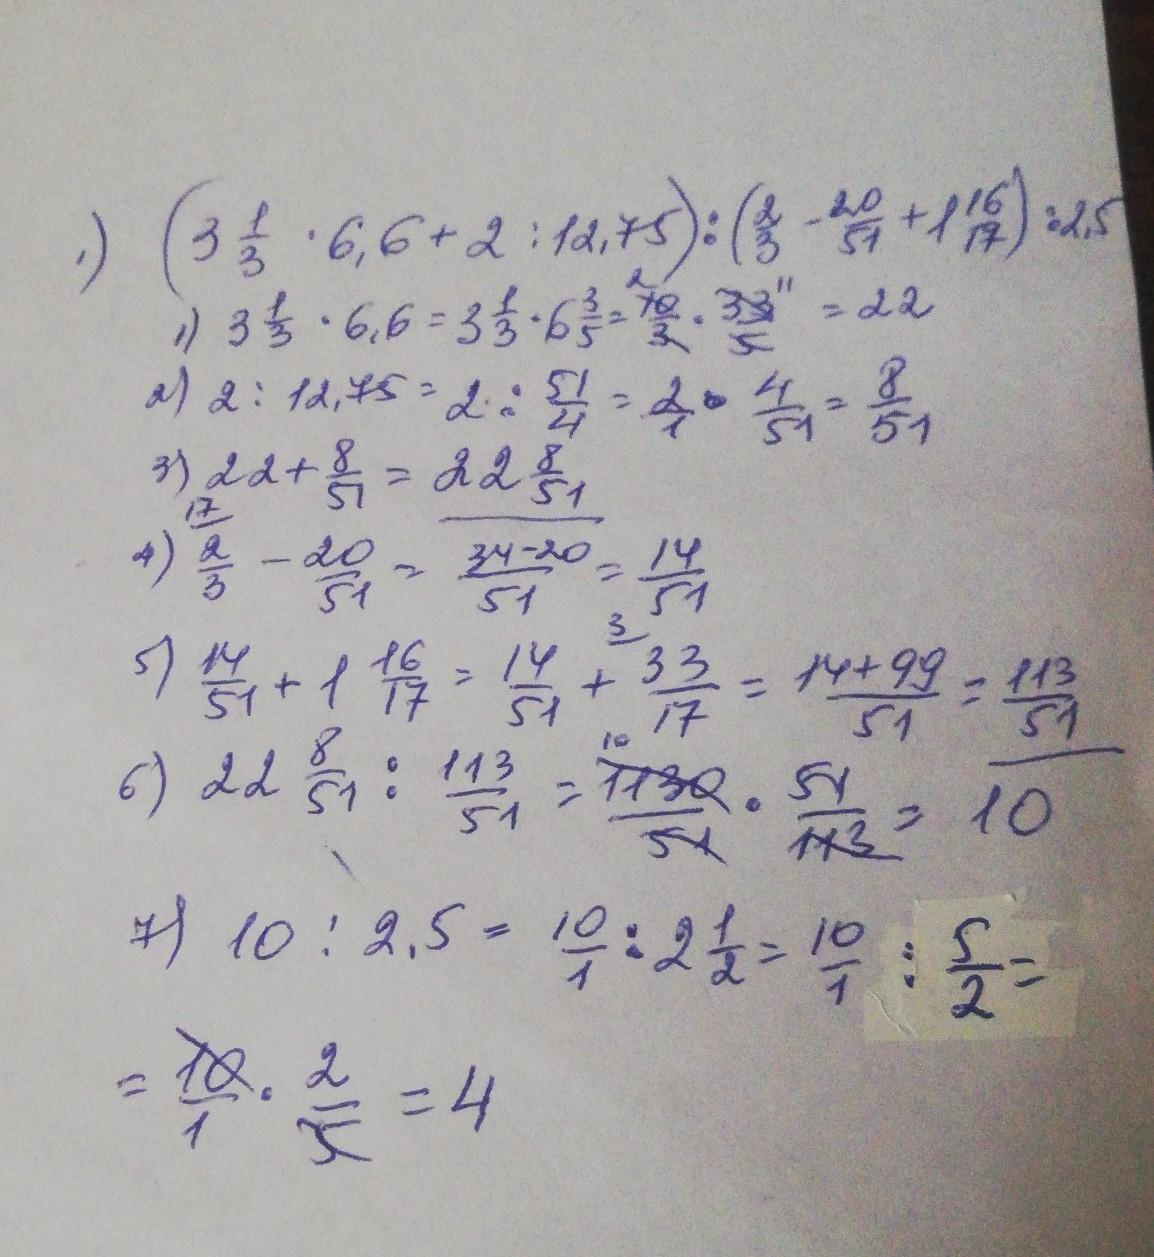 1) (3 1/3 · 6,6 + 2 : 12,75) : (2/3 - 20/51 + 1 16/17) : 2,5
1) 3 1/3 · 6,6 = 3 1/3 · 6 3/5 = 2 10/3 · 33/5 11 = 22
2) 2 : 12,75 = 2 : 51/4 = 2/1 · 4/51 = 8/51
3) 22 + 8/51 = 22 8/51
4) 17 2/3 - 20/51 = 34-20/51 = 14/51
5) 14/51 + 1 16/17 = 14/51 + 3 33/17 = 14+99/51 = 113/51
6) 22 8/51 : 113/51 = 10 1130/51 · 51/113 = 10
7) 10 : 2,5 = 10/1 : 2 1/2 = 10/1 : 5/2 =
= 10/1 · 2/5 = 4